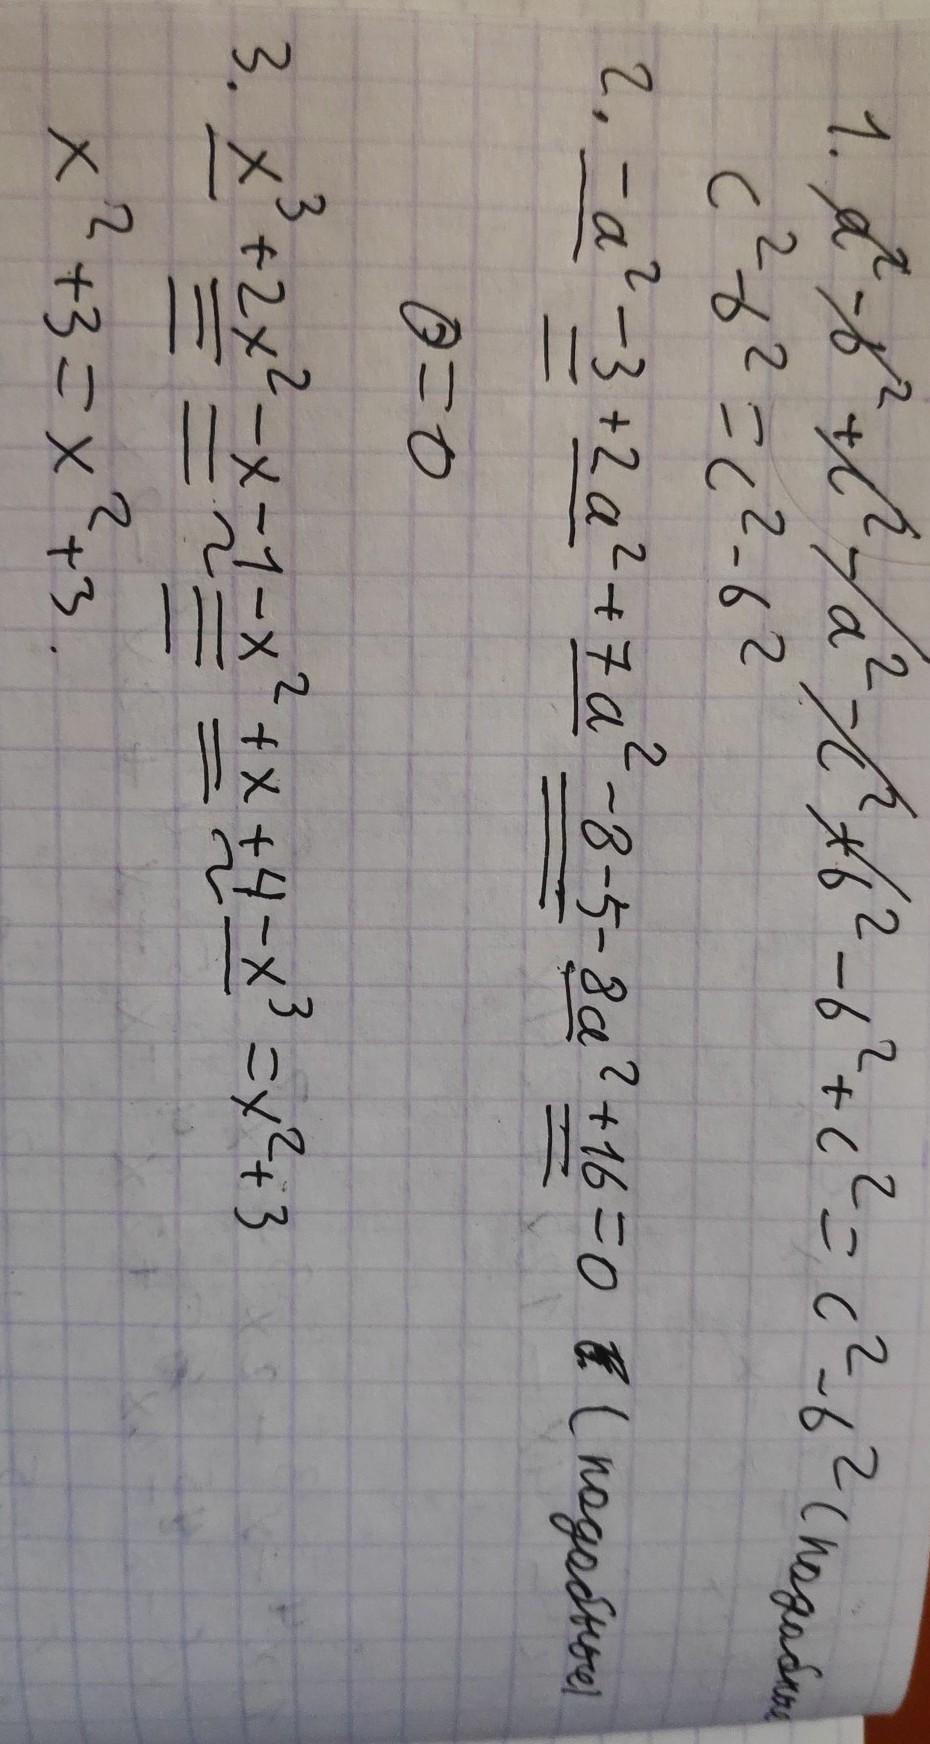 1. a² - b² + c² - a² - c² + b² - b² + c² = c² - b² (подобны
c² - b² = c² - b²
2. - a² - 3 + 2a² + 7a² - 8 - 5 - 8a² + 16 = 0 (подобные)
0 = 0
3. x³ + 2x² - x - 1 - x² + x + 4 - x³ = x² + 3
x² + 3 = x² + 3.